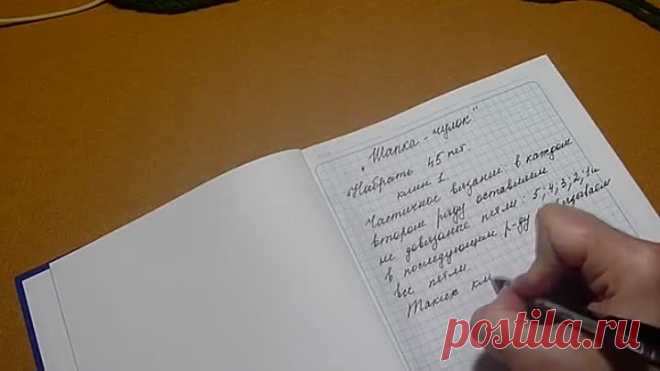 "Шапка-чулок"
Набрать 45 пет.
клин 1.
Частичное вязание: в каждом
втором ряду оставляем
не довязанные петли: 5;4;3;2;1 и
в последующем р-ду
все петли.
Таких
postila.ru